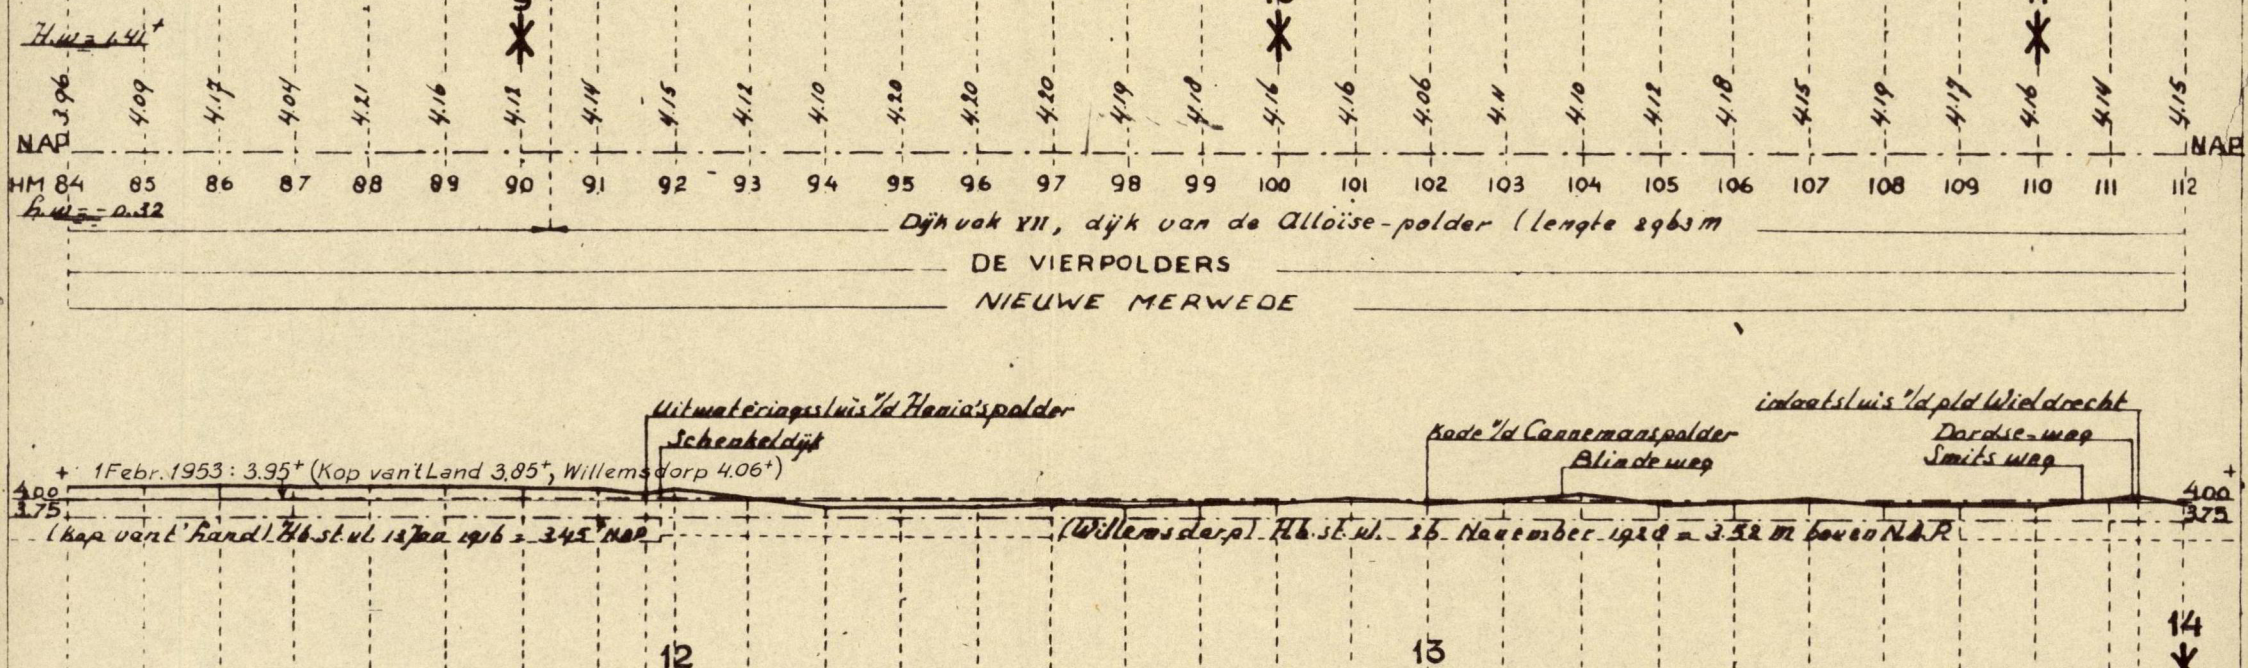 H.w = 1.41+
3.96 4.09 4.17 4.04 4.21 4.16 4.12 4.14 4.15 4.12 4.10 4.20 4.20 4.20 4.19 4.18 4.16 4.16 4.06 4.11 4.10 4.12 4.18 4.15 4.19 4.17 4.16 4.14 4.15
NAP NAP
HM 84 85 86 87 88 89 90 91 92 93 94 95 96 97 98 99 100 101 102 103 104 105 106 107 108 109 110 111 112
l.w = - 0.32
Dijkvak VII, dijk van de Alloïse-polder (lengte 2963 m
DE VIERPOLDERS
NIEUWE MERWEDE
Uitwateringssluis v/d Hania'spolder
inlaatsluis v/d pld Wieldrecht
Schenkeldijk
Kade v/d Cannemanspolder
Dordse-weg
Blindeweg
Smits weg
+ 1 Febr. 1953: 3.95+ (Kop van't Land 3.85+, Willemsdorp 4.06+) +
4.00 4.00
3.75 3.75
(Kop van t' Land) Hb. st. vl. 13 Jan 1916 = 3.45+ NAP
(Willemsdorp) Hb. st. vl. 26 November 1928 = 3.52 m boven N.A.P.
12 13 14